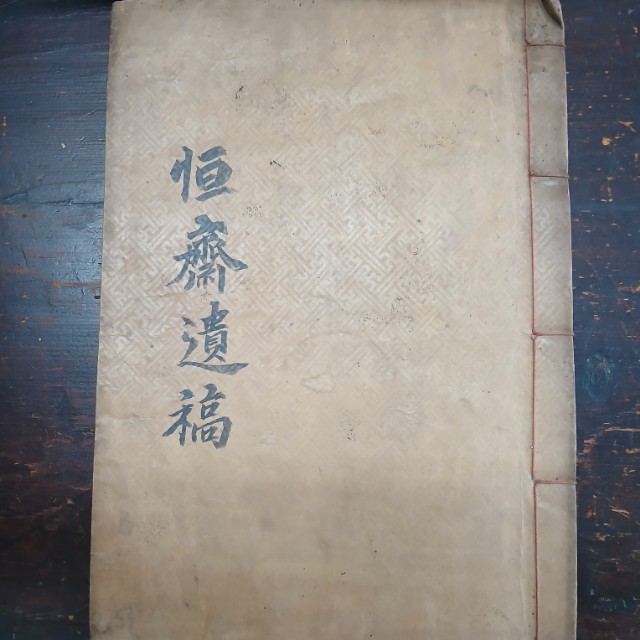 恒齋遺稿